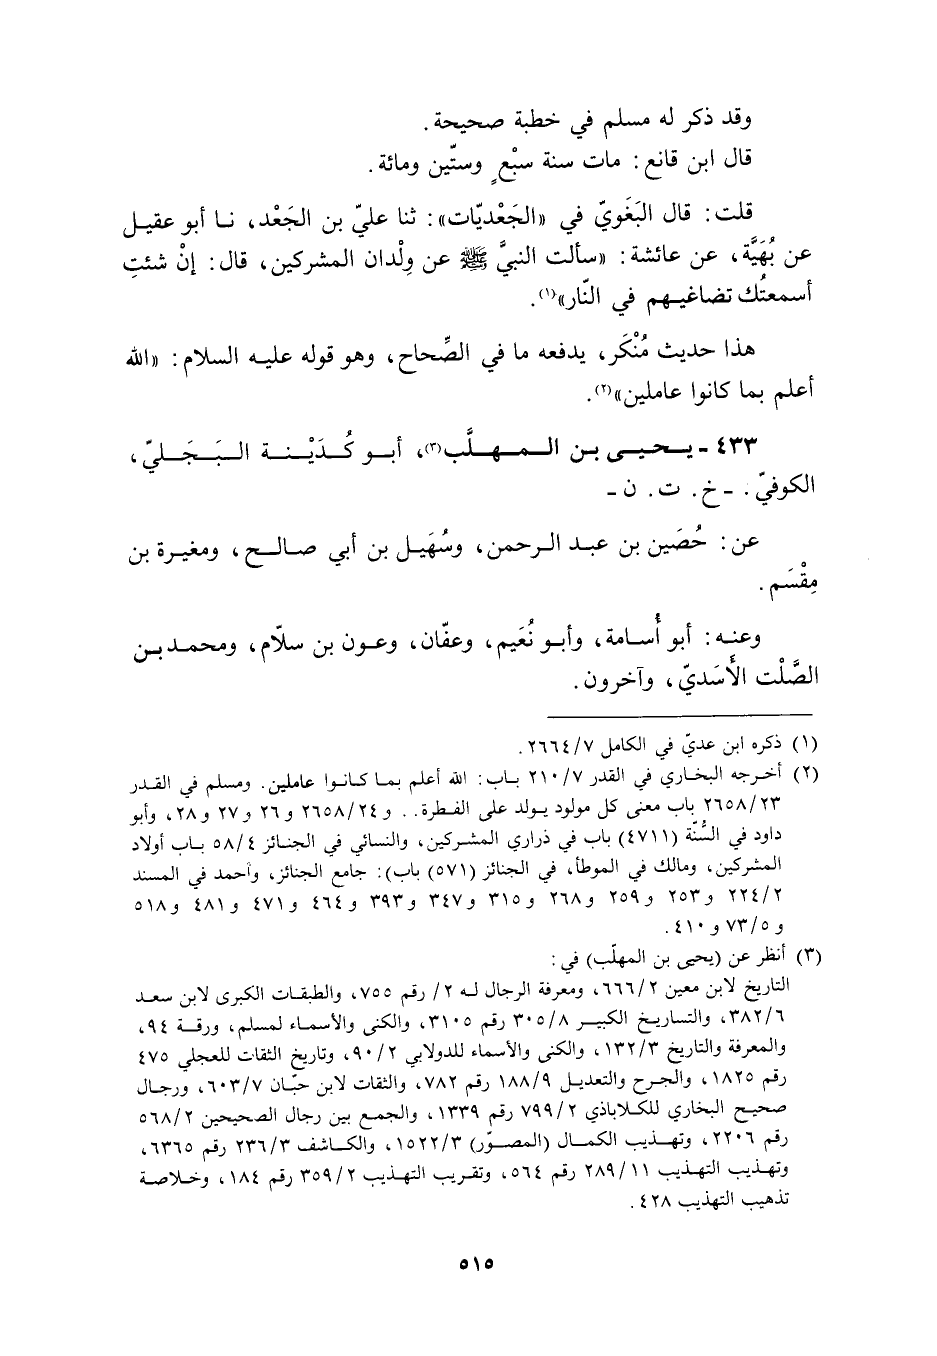 وقد ذكر له مسلم في خطبة صحيحة.
قال ابن قانع: مات سنة سبْعٍ وستّين ومائة.
قلت: قال البَغَويّ في «الجَعْديّات»: ثنا عليّ بن الجَعْد، نـا أبو عقيل
عن بُهَيَّة، عن عائشة: «سألت النبيَّ ﷺ عن وِلْدان المشركين، قال: إنْ شئتِ
أسمعتُك تضاغيـهم في النّار»(١).
هذا حديث مُنْكَر، يدفعه ما في الصِّحاح، وهو قوله عليه السلام: «الله
أعلم بما كانوا عاملين»(٢).
٤٣٣ - يـحيـى بـن الـمـهـلَّب(٣)، أبـو كُـدَيْـنـة الـبَـجَـلـيّ،
الكوفيّ. - خ. ت. ن -
عن: حُصَين بن عبد الرحمن، وسُهَيل بن أبي صالح، ومغيرة بن
مِقْسَم.
وعنه: أبو أُسامة، وأبو نُعَيم، وعفّان، وعون بن سلّام، ومحمد بـن
الصَّلْت الأَسَديّ، وآخرون.
(١) ذكره ابن عديّ في الكامل ٢٦٦٤/٧.
(٢) أخرجه البخاري في القدر ٢١٠/٧ باب: الله أعلم بما كانوا عاملين. ومسلم في القدر
٢٦٥٨/٢٣ باب معنى كل مولود يولد على الفطرة.. و ٢٦٥٨/٢٤ و ٢٦ و ٢٧ و ٢٨، وأبو
داود في السُّنّة (٤٧١١) باب في ذراري المشركين، والنسائي في الجنائز ٥٨/٤ باب أولاد
المشركين، ومالك في الموطأ، في الجنائز (٥٧١) باب): جامع الجنائز، وأحمد في المسند
٢٢٤/٢ و ٢٥٣ و ٢٥٩ و ٢٦٨ و ٣١٥ و ٣٤٧ و ٣٩٣ و ٤٦٤ و ٤٧١ و ٤٨١ و ٥١٨
و ٧٣/٥ و ٤١٠.
(٣) أنظر عن (يحيى بن المهلّب) في:
التاريخ لابن معين ٦٦٦/٢، ومعرفة الرجال له ٢/ رقم ٧٥٥، والطبقات الكبرى لابن سعد
٣٨٢/٦، والتـاريخ الكبير ٣٠٥/٨ رقم ٣١٠٥، والكنى والأسماء لمسلم، ورقة ٩٤،
والمعرفة والتاريخ ١٣٢/٣، والكنى والأسماء للدولابي ٩٠/٢، وتاريخ الثقات للعجلي ٤٧٥
رقم ١٨٢٥، والجرح والتعديل ١٨٨/٩ رقم ٧٨٢، والثقات لابن حبّان ٦٠٣/٧، ورجال
صحيح البخاري للكلاباذي ٧٩٩/٢ رقم ١٣٣٩، والجمع بين رجال الصحيحين ٥٦٨/٢
رقم ٢٢٠٦، وتهذيب الكمال (المصوّر) ١٥٢٢/٣، والكاشف ٢٣٦/٣ رقم ٦٣٦٥،
وتهذيب التهذيب ٢٨٩/١١ رقم ٥٦٤، وتقريب التهذيب ٣٥٩/٢ رقم ١٨٤، وخلاصة
تذهيب التهذيب ٤٢٨.
٥١٥